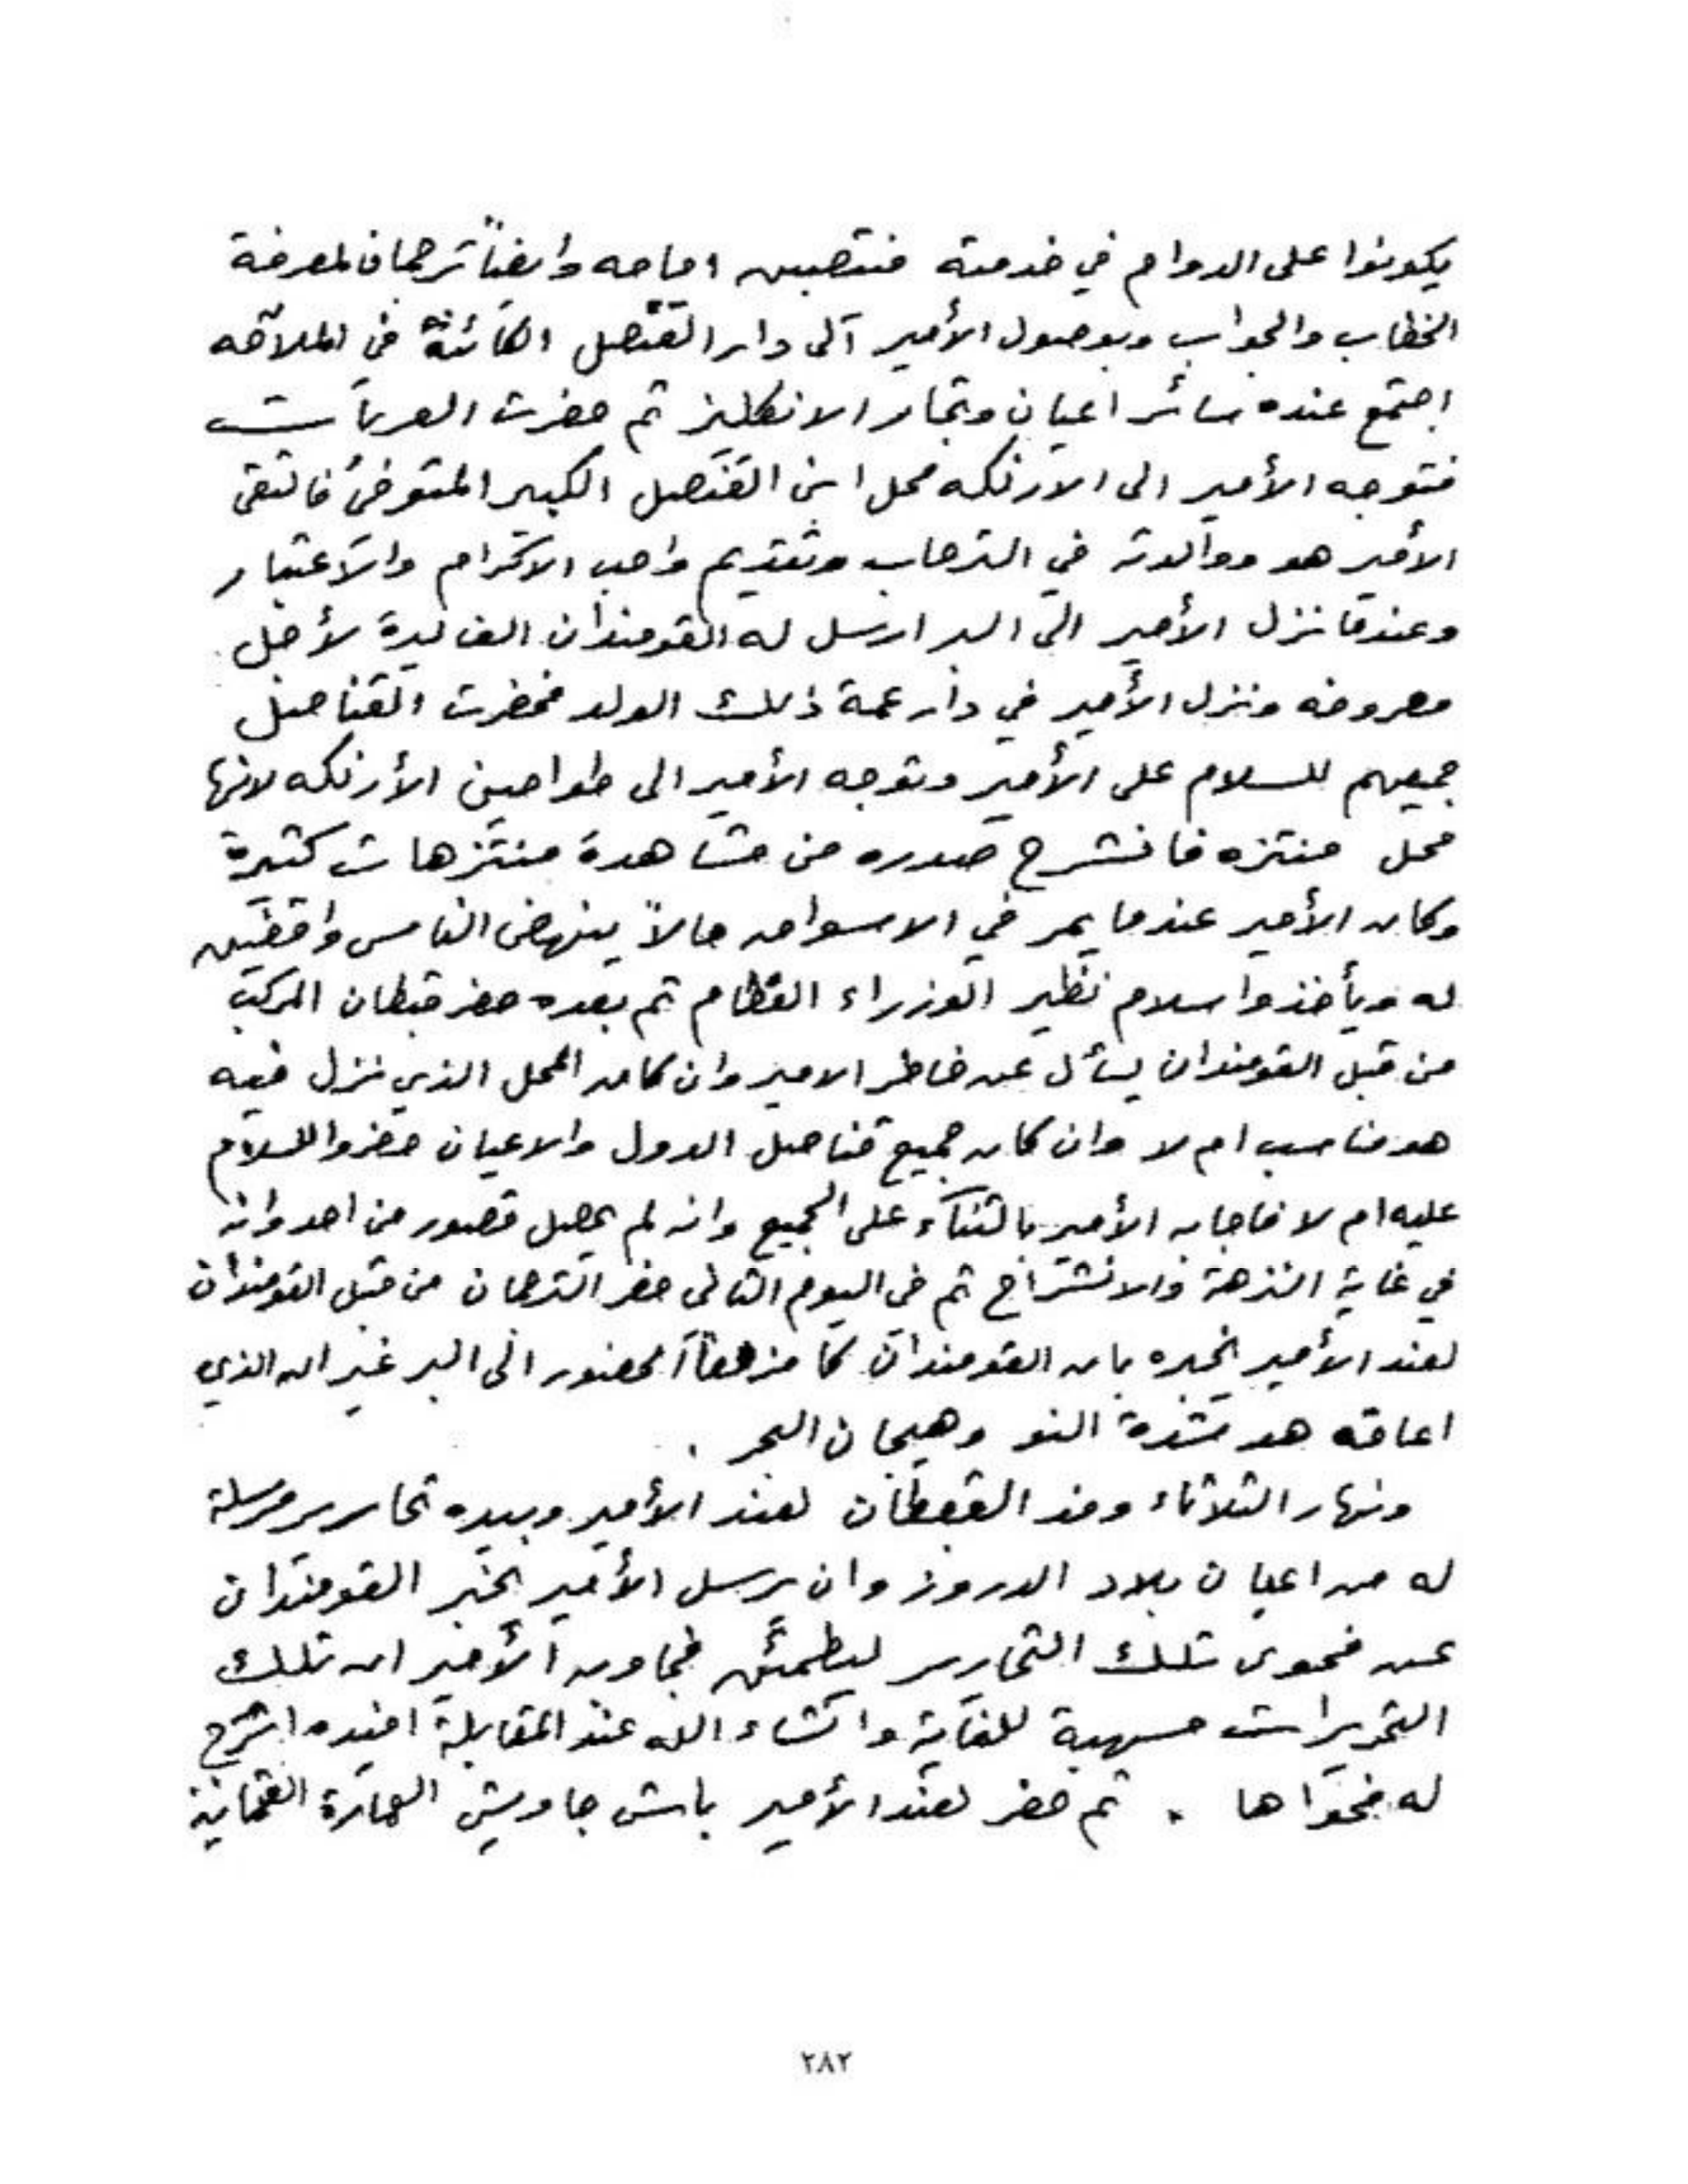 يكونوا على الدوام في خدمته منتصبين امامه وأيضاً ترجمان لمعرفة
الخطاب والجواب وبوصول الأمير الى دار القنصل الكائنة في الملاقه
اجتمع عنده سائر اعيان وتجار الانكليز ثم حضرت العربات
فتوجه الأمير الى الارنكه محل ابن القنصل الكبير المتوفي فالتقى
الأمير هو ووالدته في الترحاب وتقديم واجب الاكرام والاعتبار
وعندما نزل الأمير الى البر ارسل له القومندان الف ليرة لأجل
مصروفه ونزل الأمير في دار عمة ذلك الولد فحضرت القناصل
جميعهم للسلام على الأمير وتوجه الأمير الى طواحين الأرنكه لانها
محل منتزه فانشرح صدره من مشاهدة منتزهات كثيرة
وكان الأمير عندما يمر في الاسواق حالاً ينهض الناس واقفين
له ويأخذوا سلام نظير الوزراء العظام ثم بعده حضر قبطان المركب
من قبل القومندان يسأل عن خاطر الامير وان كان المحل الذي نزل فيه
هو مناسب ام لا وان كان جميع قناصل الدول والاعيان حضروا للسلام
عليه ام لا فاجابه الأمير بالثناء على الجميع وانه لم يحصل قصور من احد وانه
في غاية النزهة والانشراح ثم في اليوم الثاني حضر الترجمان من قبل القومندان
لعند الأمير يخبره بان القومندان كان مزمعاً لحضور الى البر غير ان الذي
اعاقه هو شدة النو وهيجان البحر .
ونهار الثلاثاء وفد القبطان لعند الأمير وبيده تحارير مرسلة
له من اعيان بلاد الدروز وان يرسل الأمير يخبر القومندان
عن فحوى تلك التحارير ليطمئن فجاوب الأمير ان تلك
التحريرات مسهبة للغاية وانشاء الله عند المقابلة افيده اشرح
له فحواها . ثم حضر لعند الأمير باش جاويش العمارة العثمانية
٢٨٢